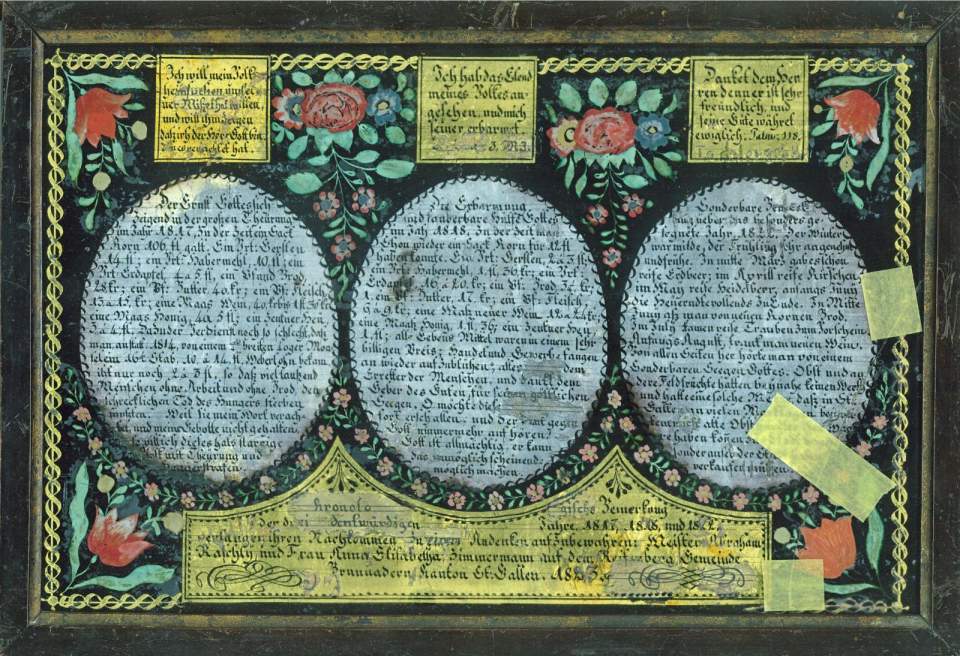 Ich will mein Volk
heimsuchen um sei-
ner Missethat willen,
und will ihm zeigen
daß ich der Herr Gott bin,
hat.
Ich hab das Elend
meines Volkes an-
gesehen, und mich
seiner erbarmet.
Danket dem Her-
ren denn er ist sehr
freundlich, und
seine Güte währet
ewiglich. Psalm, 118.
Der Ernst Gottes sich
Zeigend in der großen Theürung
im Jahr 1817. In der Zeit ein Sact
Korn 106 fl galt. Ein Vrt: Gersten
14 fl; ein Vrt: Habermehl, 10 fl; ein
Vrt: Erdapfel, fl, ein Pfund Brod
28 kr; ein Pf: Butter 40 kr; ein Pf: Fleisch
13 a 15 kr; eine Maas Wein,
eine Maas Honig, fl; ein Zentner Heu
3 a 4 fl. Dabei der Verdienst noch so schlecht, daß
man anstat 1814, von einem breiten
Stab, 10 a 14 fl. Weberlohn bekam
ihr nur noch, 2 a 3 fl, so daß viel tausend
Menschen ohne Arbeit und ohne Brod, den
schrecklichen Tod des Hungers sterben
mußten. Weil sie mein Wort verach-
tet und meine Gebotte nicht gehalten,
so will ich dieses halsstarige
Volk mit Theürung und
Hungerstrafen
Die Erbarmung
und sonderbare Hülffe Gottes
im Jahr 1818. In der Zeit man
schon wieder ein Sact Korn für 12 fl
haben konnte. Ein Vrt: Gersten, 2 a 3 fl
ein Vrt: Habermehl, 1 fl, 36 kr; ein Vrt:
Erdäpfel, 16 a 20 kr; ein Pf: Brod, 3 kr,
1. ein Pf: Butter, 17 kr; ein Pf: Fleisch,
6 a 9 kr; eine Maß neüer Wein, 12 a 24 kr,
eine Maaß Honig, 1 fl, 36; ein Zentner Heu
1 fl; alle Lebens Mittel waren in einem sehr
billigen Preis; Handel und Gewerbe fangen
an wieder auf zublühen; alles dem
Erretter der Menschen, und dankt dem
Geber des Guten, für seinen göttlichen
Seegen. O möchte dieses
fort erschallen, und der Dank gegen
Gott nimmermehr auf hören!
Gott ist allmächtig, er kann
das unmöglich scheinend
möglich machen.
Sonderbare Fruchtb-
ung ueber das besonders ge-
segnete Jahr, 1822. Der Winter
war milde, der Frühling sehr angenehm
und frühe. In mitte März gab es schon
reife Erdbeer; im Aprill reife Kirschen;
im May reife Heidelber; anfangs Juni
die Heüerndte vollends zu Ende. In Mitte
Juni aß man von neüen Kornen Brod.
Im July kamen reife Trauben zum Vorschein
Anfangs August, trank man neüen Wein.
Von allen Seiten her hörte man von einem
sonderbaren Seegen Gottes. Obst und an-
dere Feldfrüchte hatten beynahe keinen Werth
und hatte eine solche daß in St.
Gallen, an vielen
alte Obst
haben könen
sonder auf der
verkaufen
Kronolo gische Bemerkung
der drei denkwürdigen Jahre, 1817, 1818, und 1822.
verlangen ihren Nachkomen zu einem Andenken aufzubewahren. Meister Abraham
Raschly, und Frau Anna Elisabetha, Zimmermann auf dem Gemeinde
Brunnadern Kanton St. Gallen. 1823.